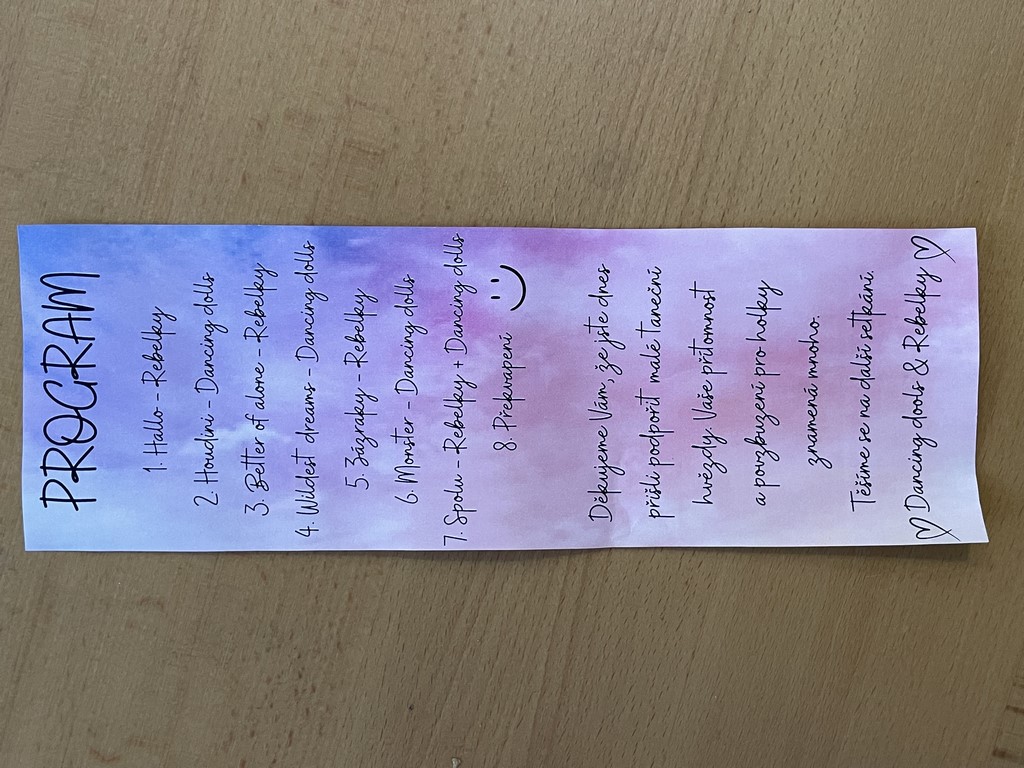 PROGRAM
1. Hallo - Rebelky
2. Houdini - Dancing dolls
3. Better of alone - Rebelky
4. Wildest dreams - Dancing dolls
5. Zázraky - Rebelky
6. Monster - Dancing dolls
7. Spolu - Rebelky + Dancing dolls
8. Překvapení
Děkujeme Vám, že jste dnes
přišli podpořit malé taneční
hvězdy. Vaše přítomnost
a povzbuzení pro holky
znamená mnoho.
Těšíme se na další setkání.
♡ Dancing dools & Rebelky ♡